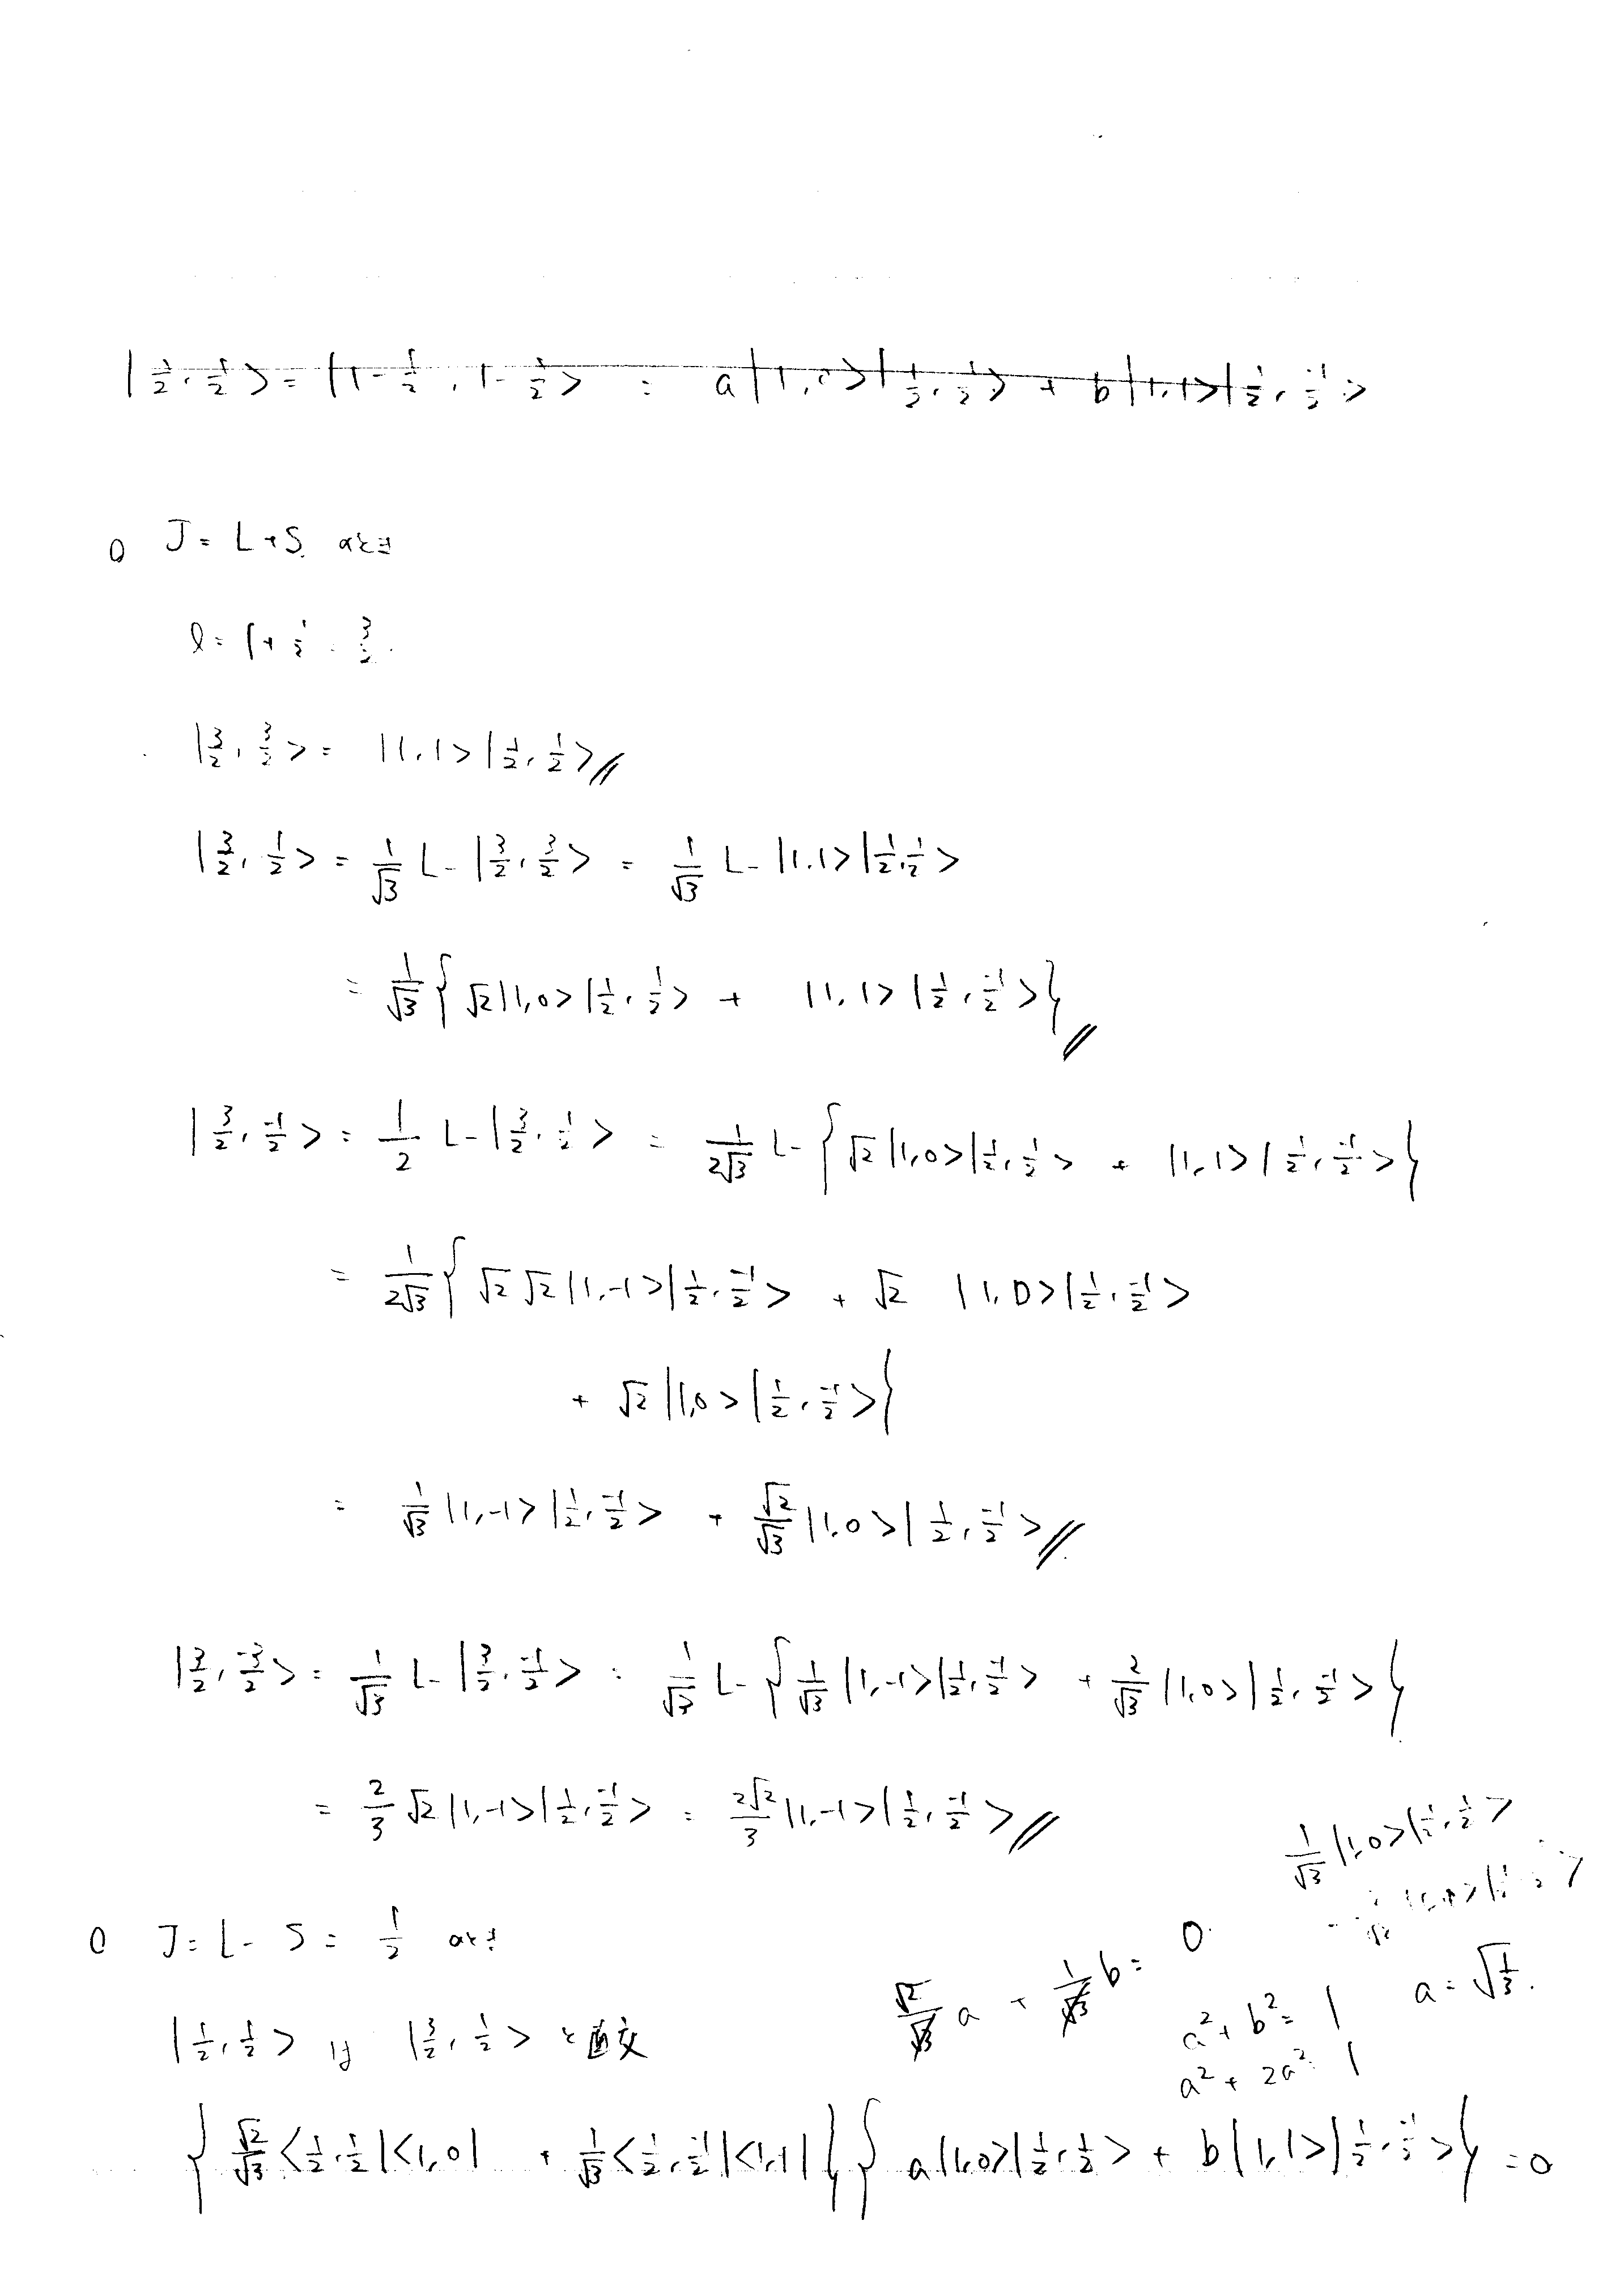 |1/2, 1/2> = |1-1/2, 1-1/2> = a|1,0>|1/2, 1/2> + b|1,1>|1/2, -1/2>
○ J = L+S のとき
l = 1+1/2 = 3/2.
|3/2, 3/2> = |1,1>|1/2, 1/2> //
|3/2, 1/2> = 1/√3 L- |3/2, 3/2> = 1/√3 L- |1,1>|1/2, 1/2>
= 1/√3 { √2|1,0>|1/2, 1/2> + |1,1>|1/2, -1/2> } //
|3/2, -1/2> = 1/2 L- |3/2, 1/2> = 1/2√3 L- { √2|1,0>|1/2, 1/2> + |1,1>|1/2, -1/2> }
= 1/2√3 { √2 √2|1,-1>|1/2, -1/2> + √2 |1,0>|1/2, -1/2>
+ √2|1,0>|1/2, -1/2> }
= 1/√3 |1,-1>|1/2, -1/2> + √2/√3 |1,0>|1/2, -1/2> //
|3/2, -3/2> = 1/√3 L- |3/2, -1/2> = 1/√3 L- { 1/√3 |1,-1>|1/2, -1/2> + 2/√3 |1,0>|1/2, -1/2> }
= 2/3 √2|1,-1>|1/2, -1/2> = 2√2/3 |1,-1>|1/2, -1/2> //
1/√3 |1,0>|1/2, 1/2>
○ J = L - S = 1/2 のとき
√2/√3 a + 1/√3 b = 0.
a² + b² = 1
a = √1/3.
a² + 2a² = 1
|1/2, 1/2> は |3/2, 1/2> と直交
{ √2/√3 <1/2, 1/2|<1,0| + 1/√3 <1/2, -1/2|<1,1| } { a|1,0>|1/2, 1/2> + b|1,1>|1/2, -1/2> } = 0